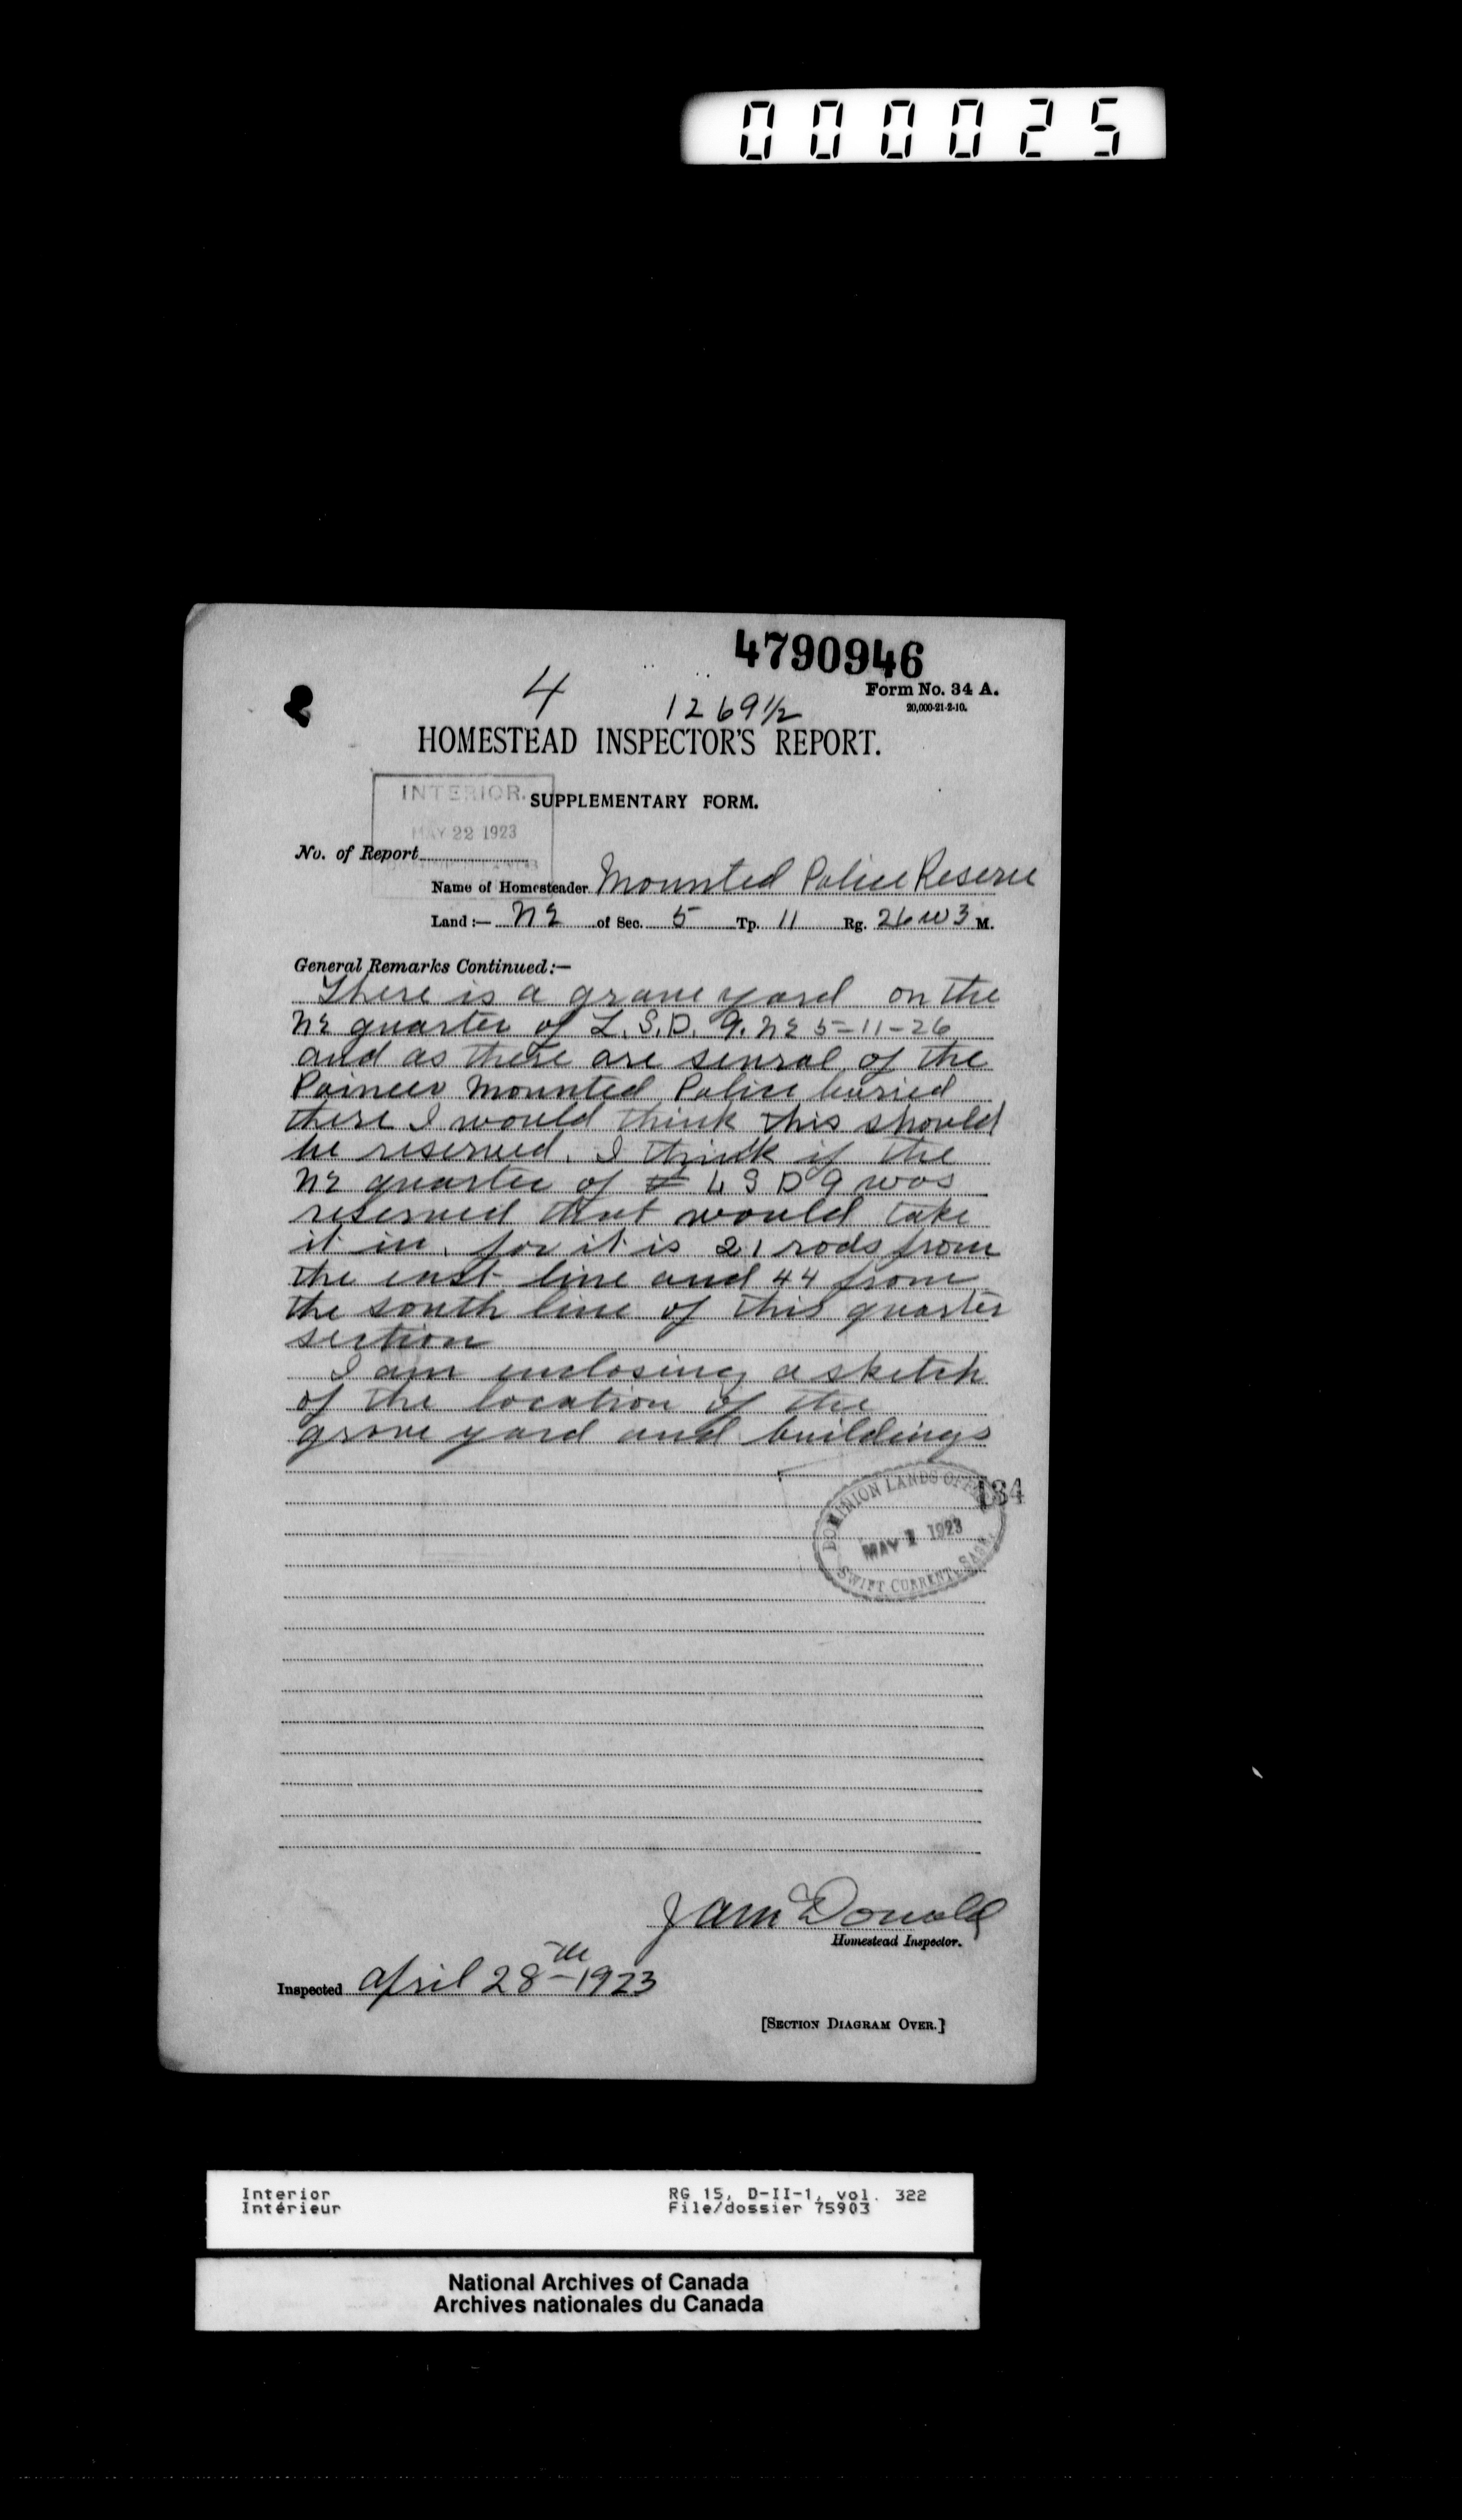 000025
4790946
Form No. 34 A.
20,000-21-2-10.
4 1269½
HOMESTEAD INSPECTOR'S REPORT.
INTERIOR.
SUPPLEMENTARY FORM.
MAY 22 1923
No. of Report
Name of Homesteader Mounted Police Reserve
Land:— NE of Sec. 5 Tp. 11 Rg. 26 W 3 M.
General Remarks Continued:—
There is a grave yard on the
NE quarter of L.S.D. 9. NE 5-11-26
and as there are sevral of the
Poineer Mounted Police buried
there I would think this should
be reserved. I think if the
NE quarter of L S D 9 was
reserved that would take
it in. for it is 21 rods from
the east line and 44 from
the south line of this quarter
section
I am inclosing a sketch
of the location of the
grave yard and buildings
134
DOMINION LANDS OFFICE
MAY 1 1923
SWIFT CURRENT, SASK.
Donald
Homestead Inspector.
Inspected April 28th 1923
[SECTION DIAGRAM OVER.]
Interior RG 15, D-II-1, vol. 322
Intérieur File/dossier 75903
National Archives of Canada
Archives nationales du Canada